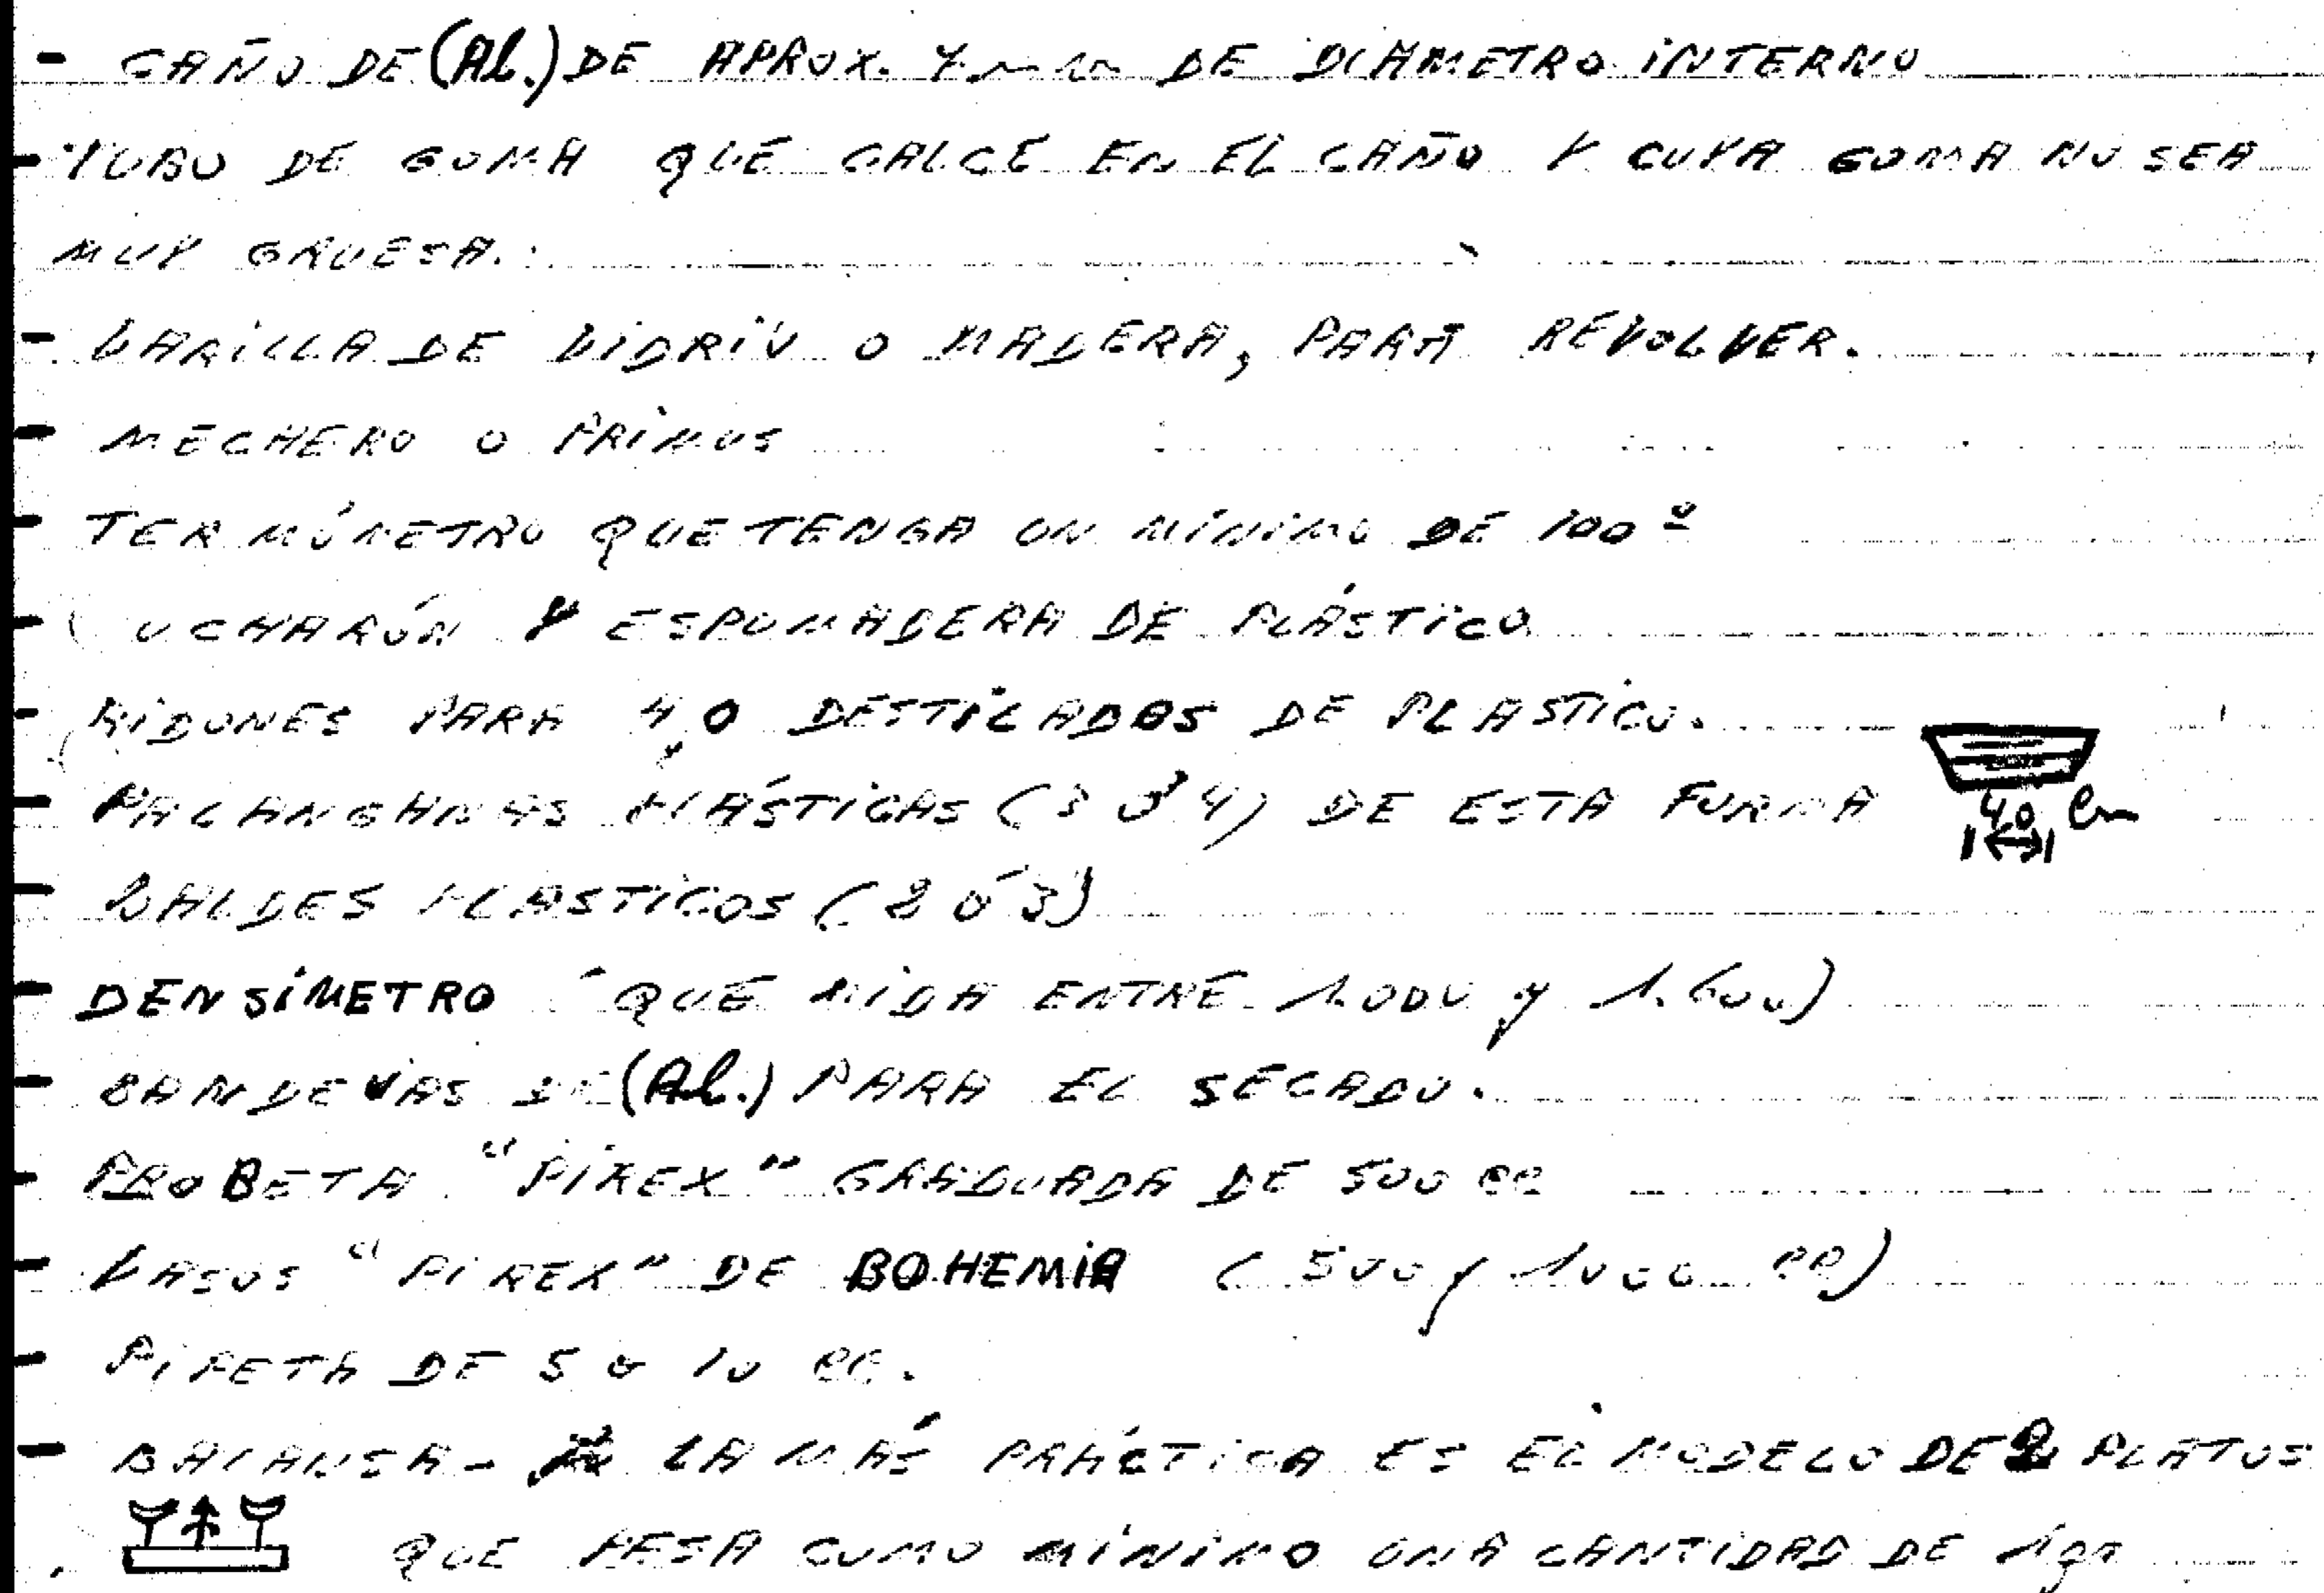 - CAÑO DE (Al.) DE APROX. 7 mm DE DIAMETRO INTERNO
- TUBO DE GOMA QUE CALCE EN EL CAÑO Y CUYA GOMA NO SEA
MUY GRUESA.
- VARILLA DE VIDRIO O MADERA, PARA REVOLVER.
- MECHERO O PRIMUS
- TERMÓMETRO QUE TENGA UN MÍNIMO DE 100º
- CUCHARÓN Y ESPUMADERA DE PLÁSTICO
- BIDONES PARA H2O DESTILADOS DE PLASTICO.
- PALANGANAS PLÁSTICAS (3 ó 4) DE ESTA FORMA
40 Cm
- BALDES PLASTICOS (2 ó 3)
- DENSÍMETRO (QUE MIDA ENTRE 1.000 y 1.600)
- BANDEJAS DE (Al.) PARA EL SECADO.
- PROBETA "PIREX" GRADUADA DE 500 cc
- VASOS "PIREX" DE BOHEMIA (500 y 1000 cc)
- PIPETA DE 5 o 10 cc.
- BALANSA - LA MÁS PRÁCTICA ES EL MODELO DE 2 PLATOS
QUE PESA COMO MÍNIMO UNA CANTIDAD DE 1gr